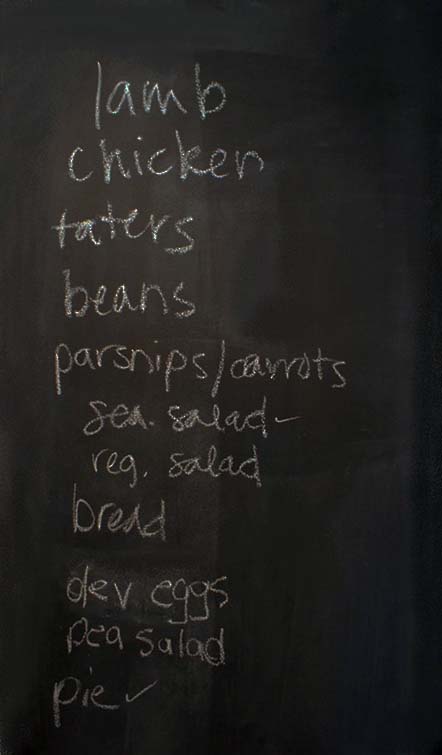 lamb
chicken
taters
beans
parsnips/carrots
sea. salad-
reg. salad
bread
dev eggs
pea salad
pie ✓